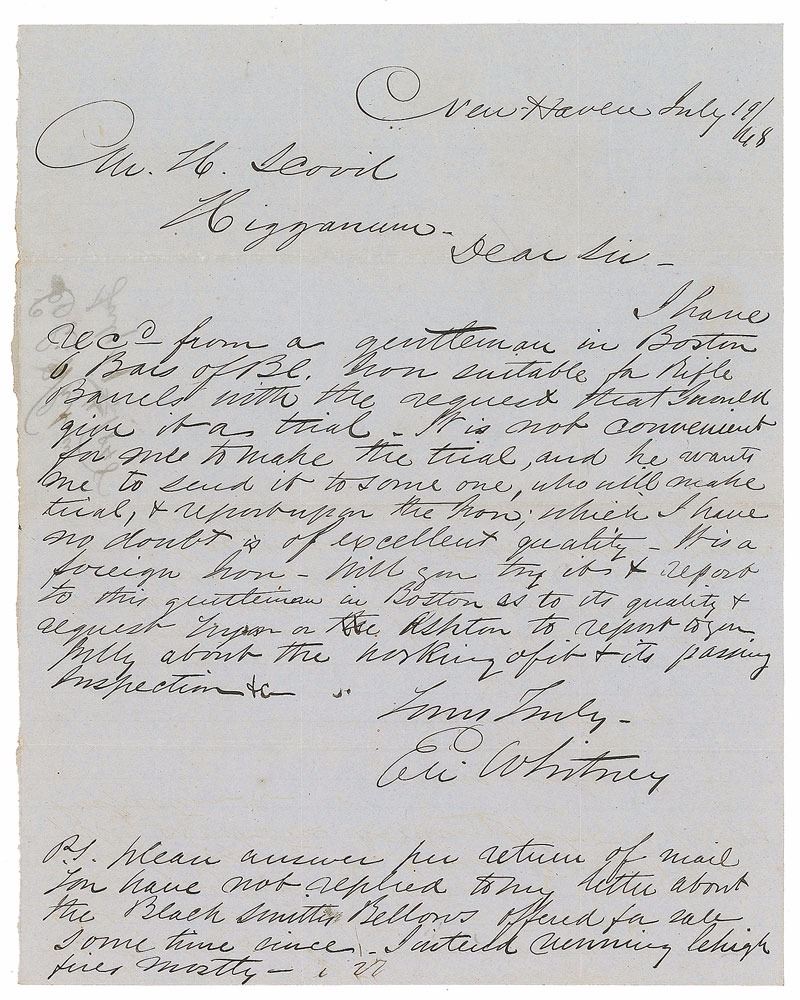 New Haven July 19/48
Mr. H. Scovil
Higganum -
Dear Sir -
I have
rec'd from a gentleman in Boston
6 Bars of Bl. Iron suitable for Rifle
Barrels with the request that I would
give it a trial - It is not convenient
for me to make the trial, and he wants
me to send it to some one, who will make
trial, & report upon the Iron; which I have
no doubt is of excellent quality - It is a
foreign Iron - Will you try it & report
to this gentleman in Boston as to its quality &
request Tryon or Ashton to report to you
fully about the working of it & its passing
Inspection &c
Yours Truly -
Eli Whitney
P.S. please answer per return of mail
You have not replied to my letter about
the Black Smiths Bellows offered for sale
some time since - I intend running Lehigh
fires mostly -